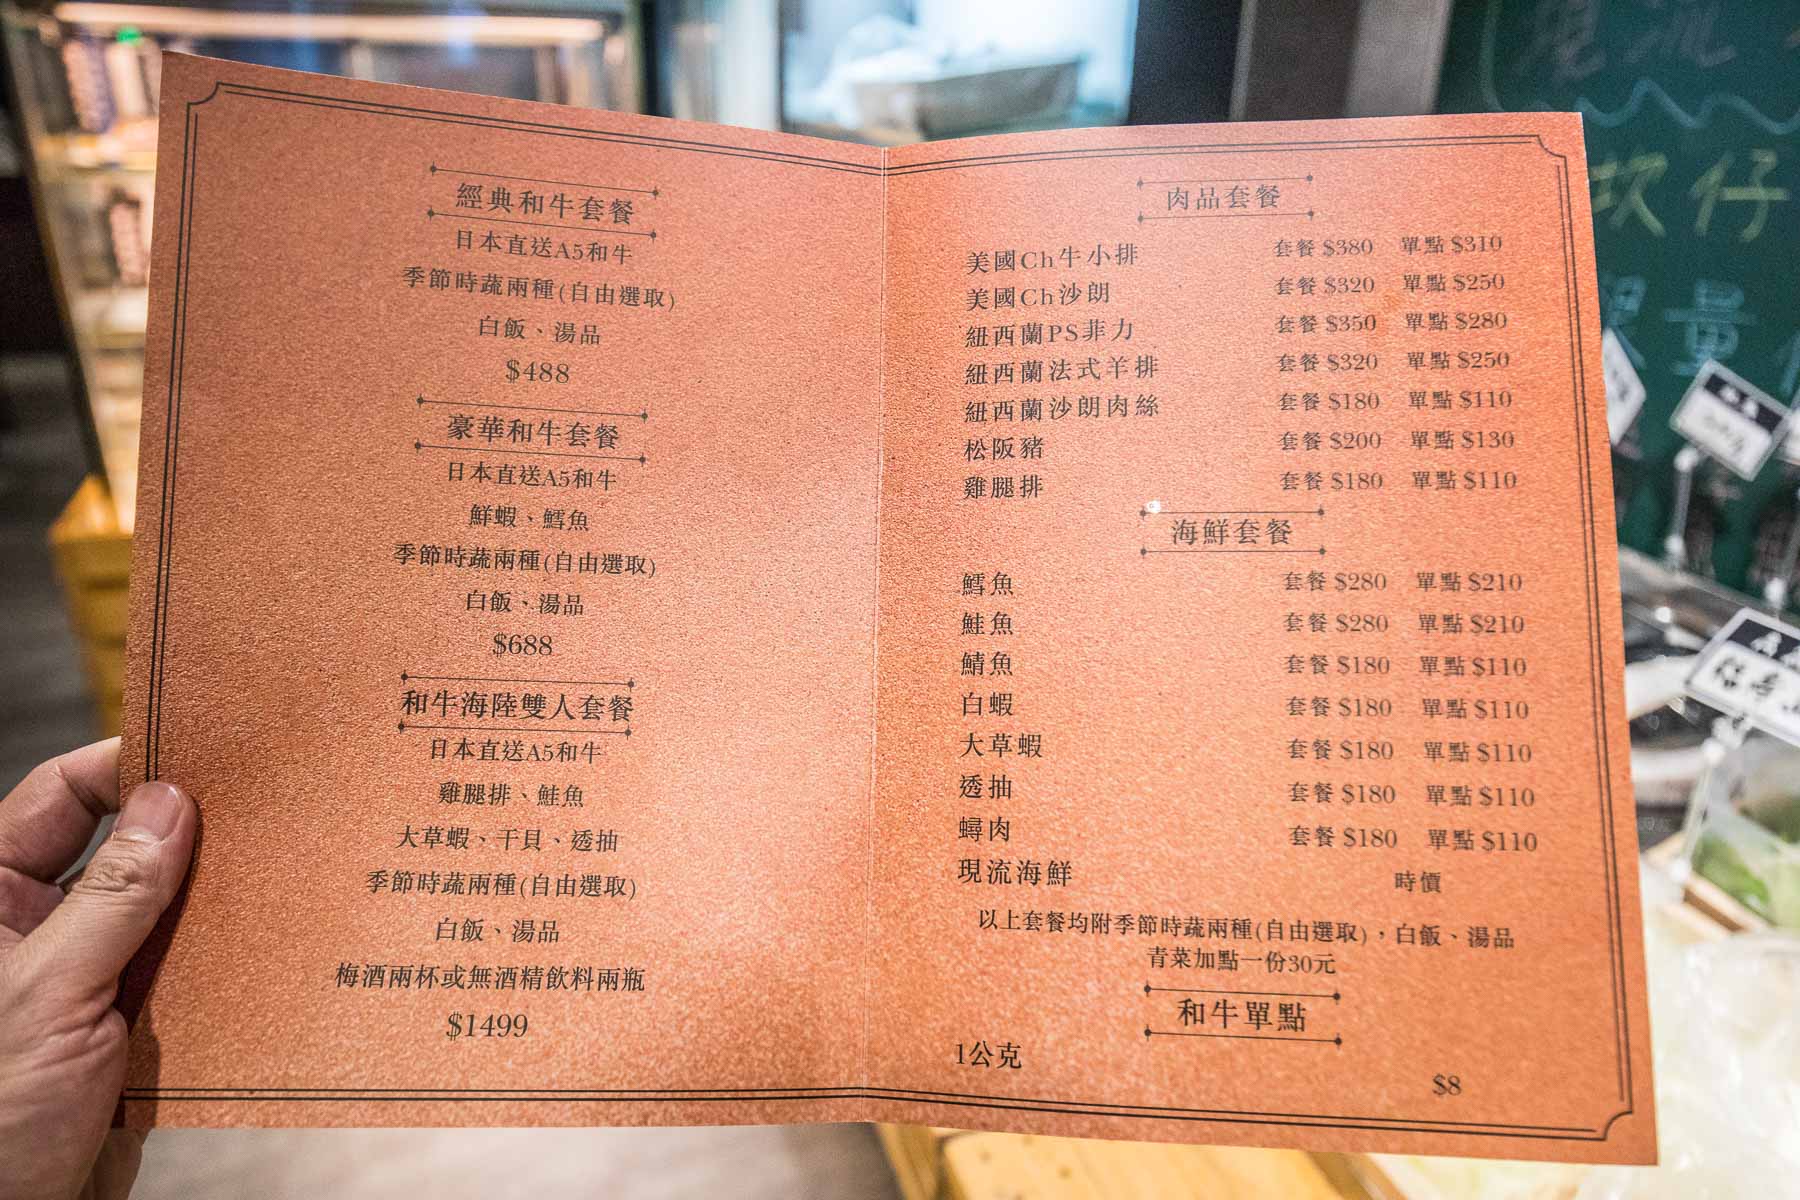 經典和牛套餐
日本直送A5和牛
季節時蔬兩種(自由選取)
白飯、湯品
$488
豪華和牛套餐
日本直送A5和牛
鮮蝦、鱈魚
季節時蔬兩種(自由選取)
白飯、湯品
$688
和牛海陸雙人套餐
日本直送A5和牛
雞腿排、鮭魚
大草蝦、干貝、透抽
季節時蔬兩種(自由選取)
白飯、湯品
梅酒兩杯或無酒精飲料兩瓶
$1499
肉品套餐
美國Ch牛小排 套餐 $380 單點 $310
美國Ch沙朗 套餐 $320 單點 $250
紐西蘭PS菲力 套餐 $350 單點 $280
紐西蘭法式羊排 套餐 $320 單點 $250
紐西蘭沙朗肉絲 套餐 $180 單點 $110
松阪豬 套餐 $200 單點 $130
雞腿排 套餐 $180 單點 $110
海鮮套餐
鱈魚 套餐 $280 單點 $210
鮭魚 套餐 $280 單點 $210
鯖魚 套餐 $180 單點 $110
白蝦 套餐 $180 單點 $110
大草蝦 套餐 $180 單點 $110
透抽 套餐 $180 單點 $110
蟳肉 套餐 $180 單點 $110
現流海鮮 時價
以上套餐均附季節時蔬兩種(自由選取)，白飯、湯品
青菜加點一份30元
和牛單點
1公克
$8
現流
坎仔
量